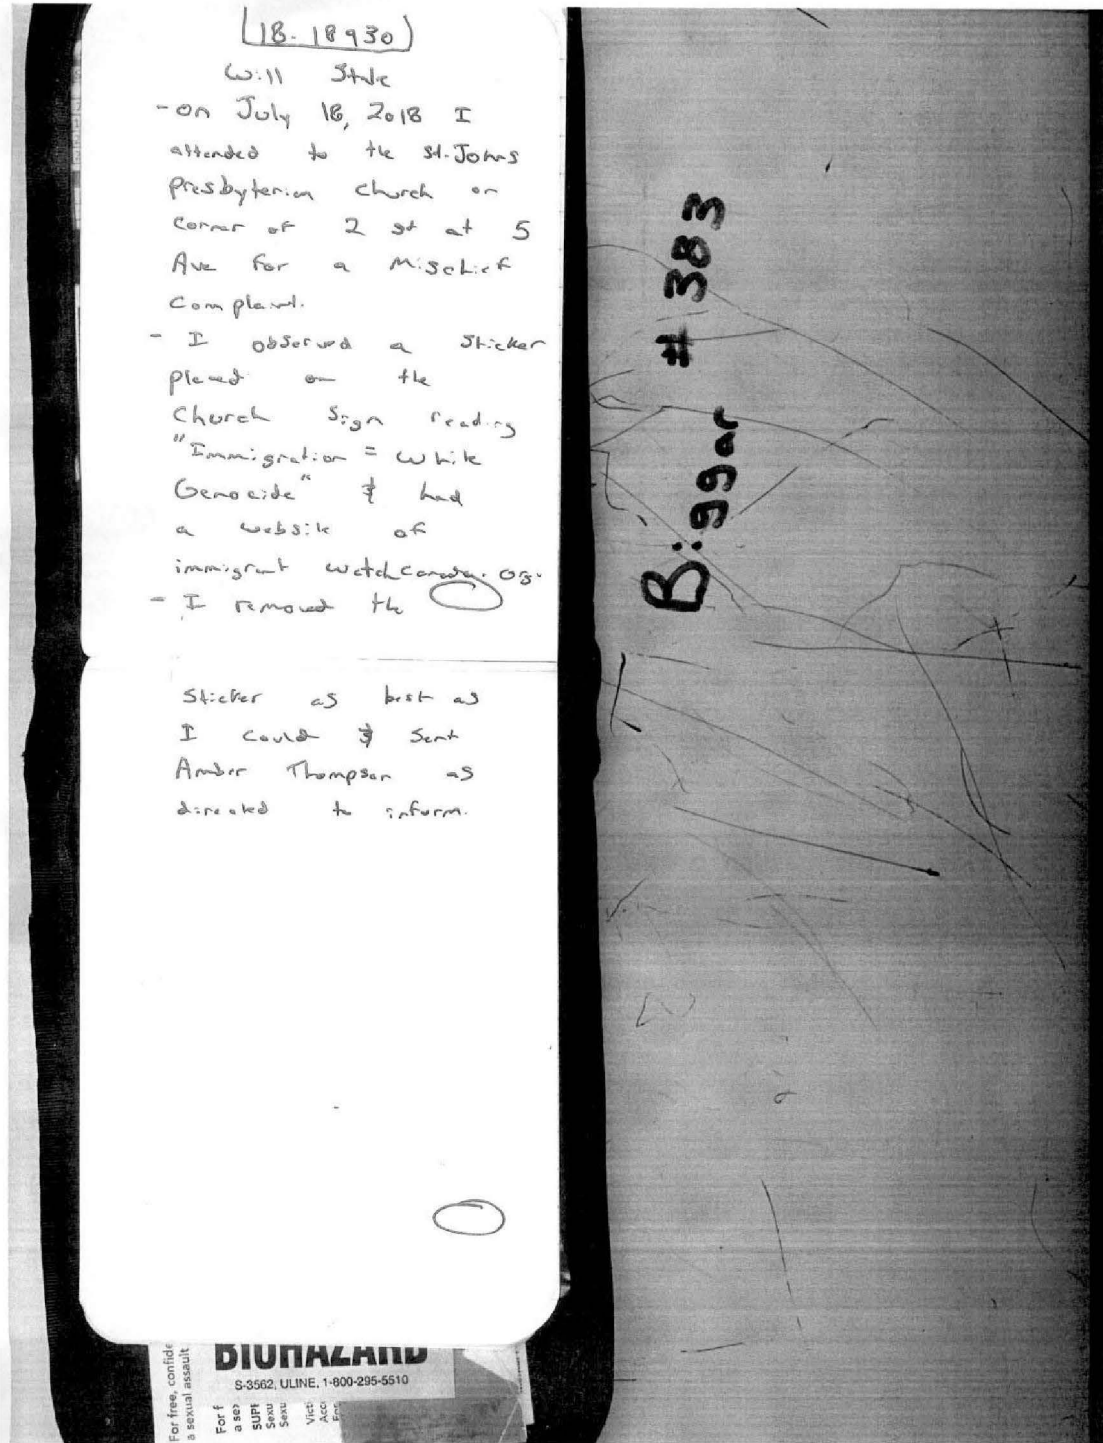 18-18930
Will State
- on July 18, 2018 I
attended to the St. Johns
presbyterian church on
corner of 2 st at 5
Ave for a Mischief
Complaint.
- I observed a sticker
placed on the
Church sign reading
"Immigration = White
Genocide" & had
a website of
immigrant watchcanada.org.
- I removed the
Sticker as best as
I could & sent
Amber Thompson as
directed to inform.
Biggar # 383
BIOHAZARD
S-3562, ULINE, 1-800-295-5510
For free, confide
a sexual assault
For f
a sex
SUPF
Sexu
Sexu
Victi
Acc